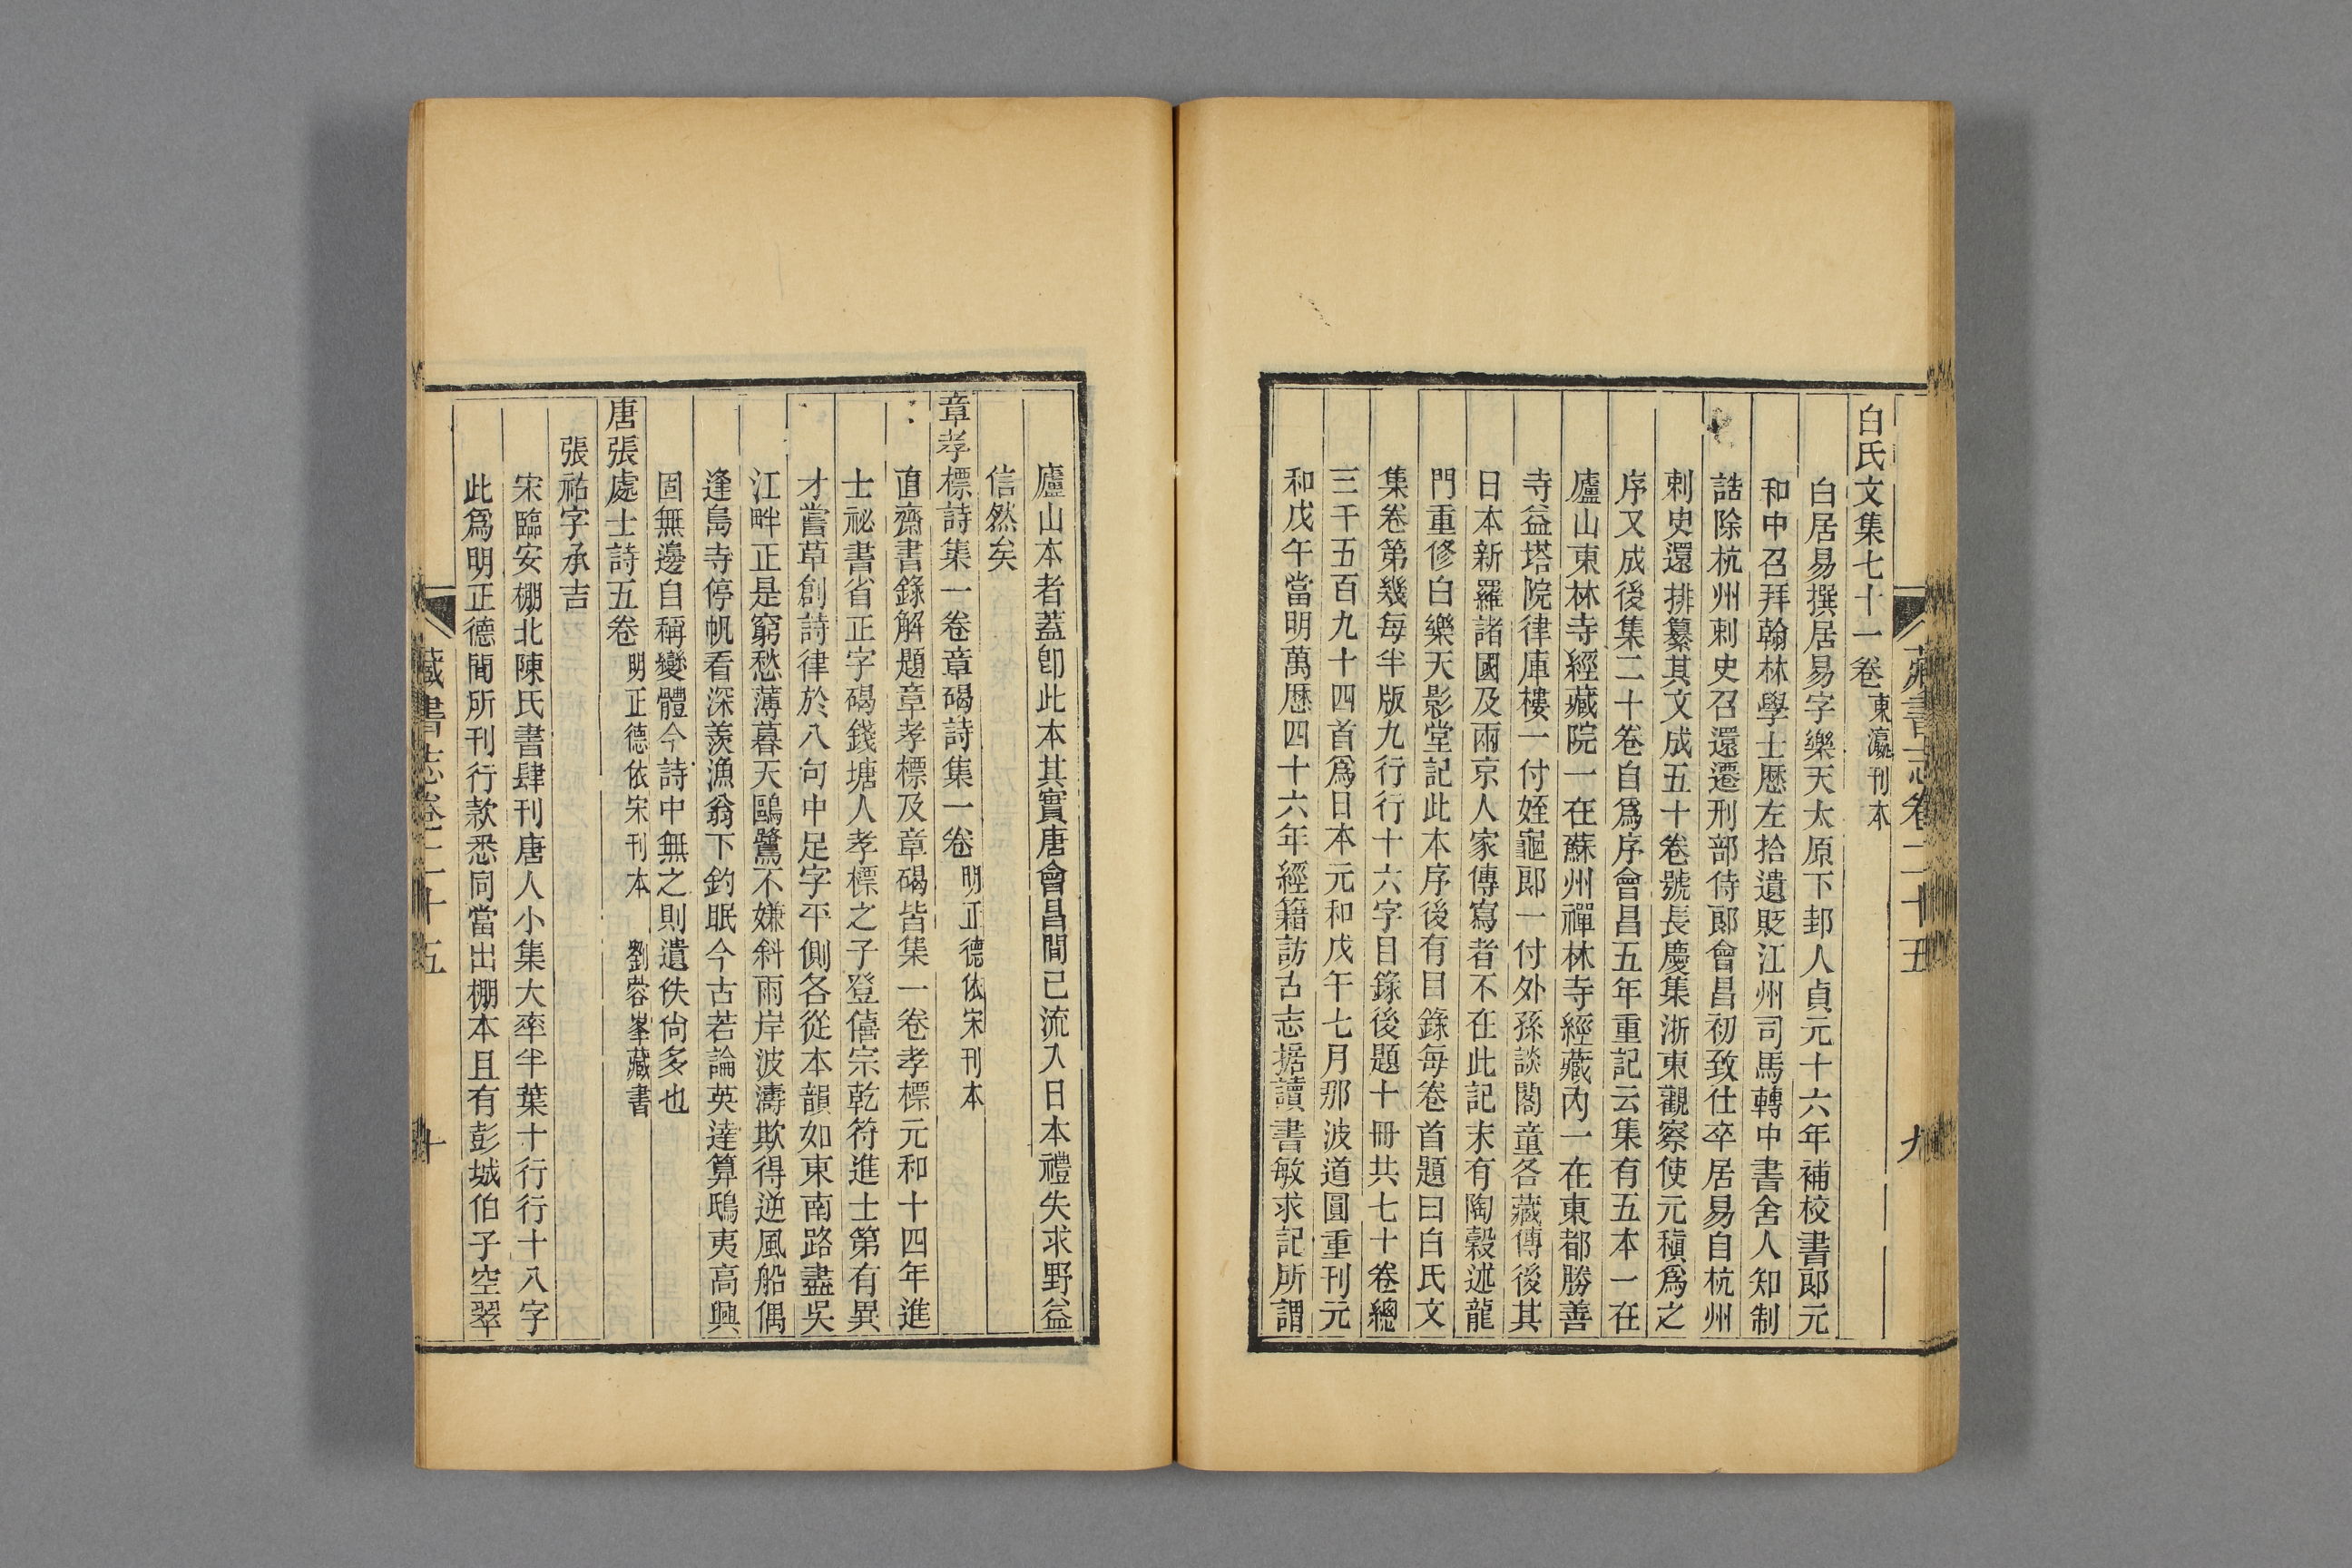 藏書志卷二十五
九
白氏文集七十一卷 東瀛刊本
白居易撰居易字樂天太原下邽人貞元十六年補校書郞元
和中召拜翰林學士歷左拾遺貶江州司馬轉中書舍人知制
誥除杭州刺史召還遷刑部侍郞會昌初致仕卒居易自杭州
刺史還排纂其文成五十卷號長慶集浙東觀察使元稹爲之
序又成後集二十卷自爲序會昌五年重記云集有五本一在
廬山東林寺經藏院一在蘇州禪林寺經藏內一在東都勝善
寺益塔院律庫樓一付姪龜郞一付外孫談閣童各藏傳後其
日本新羅諸國及兩京人家傳寫者不在此記末有陶穀述龍
門重修白樂天影堂記此本序後有目錄每卷首題曰白氏文
集卷第幾每半版九行行十六字目錄後題十冊共七十卷總
三千五百九十四首爲日本元和戊午七月那波道圓重刊元
和戊午當明萬歷四十六年經籍訪古志据讀書敏求記所謂
廬山本者蓋卽此本其實唐會昌間已流入日本禮失求野益
信然矣
章孝標詩集一卷章碣詩集一卷 明正德依宋刊本
直齋書錄解題章孝標及章碣皆集一卷孝標元和十四年進
士祕書省正字碣錢塘人孝標之子登僖宗乾符進士第有異
才嘗草創詩律於八句中足字平側各從本韻如東南路盡吳
江畔正是窮愁薄暮天鷗鷺不嫌斜雨岸波濤欺得逆風船偶
逢島寺停帆看深羨漁翁下釣眠今古若論英達算鴟夷高興
固無邊自稱變體今詩中無之則遺佚尙多也
唐張處士詩五卷 明正德依宋刊本 劉蓉峯藏書
張祐字承吉
宋臨安棚北陳氏書肆刊唐人小集大率半葉十行行十八字
此爲明正德間所刊行款悉同當出棚本且有彭城伯子空翠
藏書志卷二十五
十